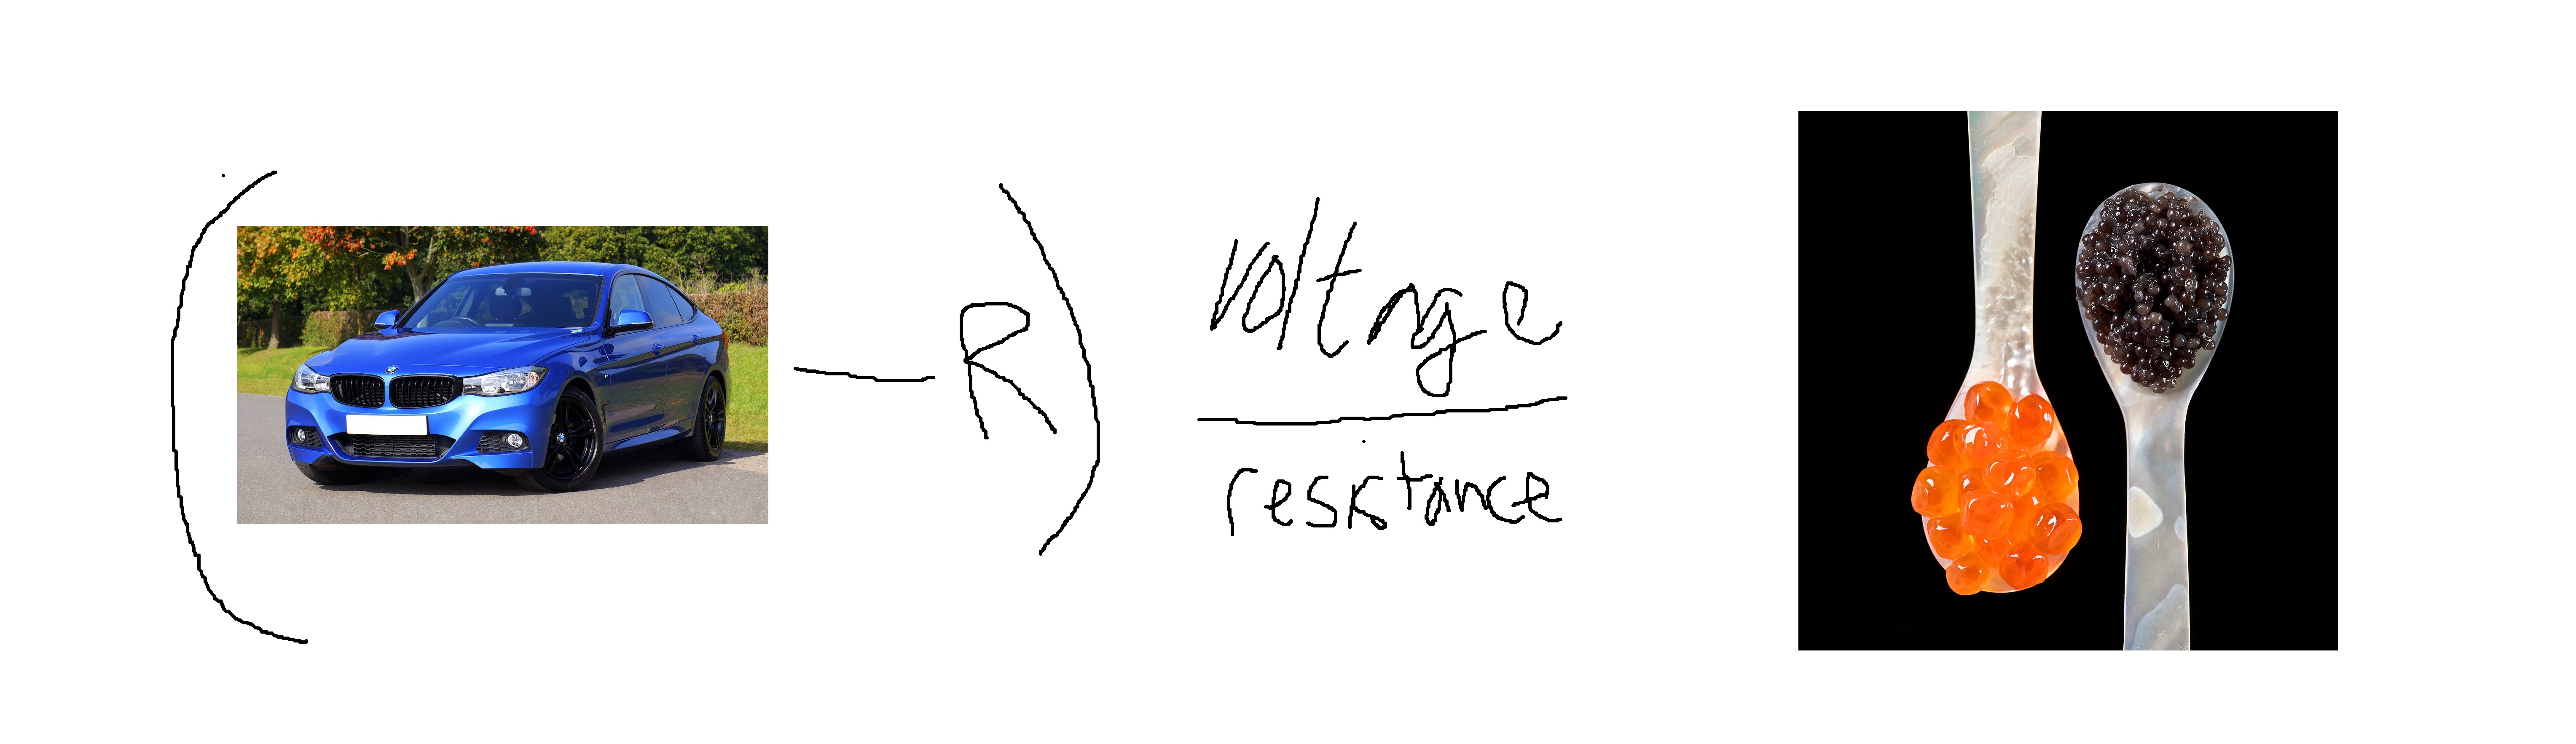 ( — R)
voltage
resistance